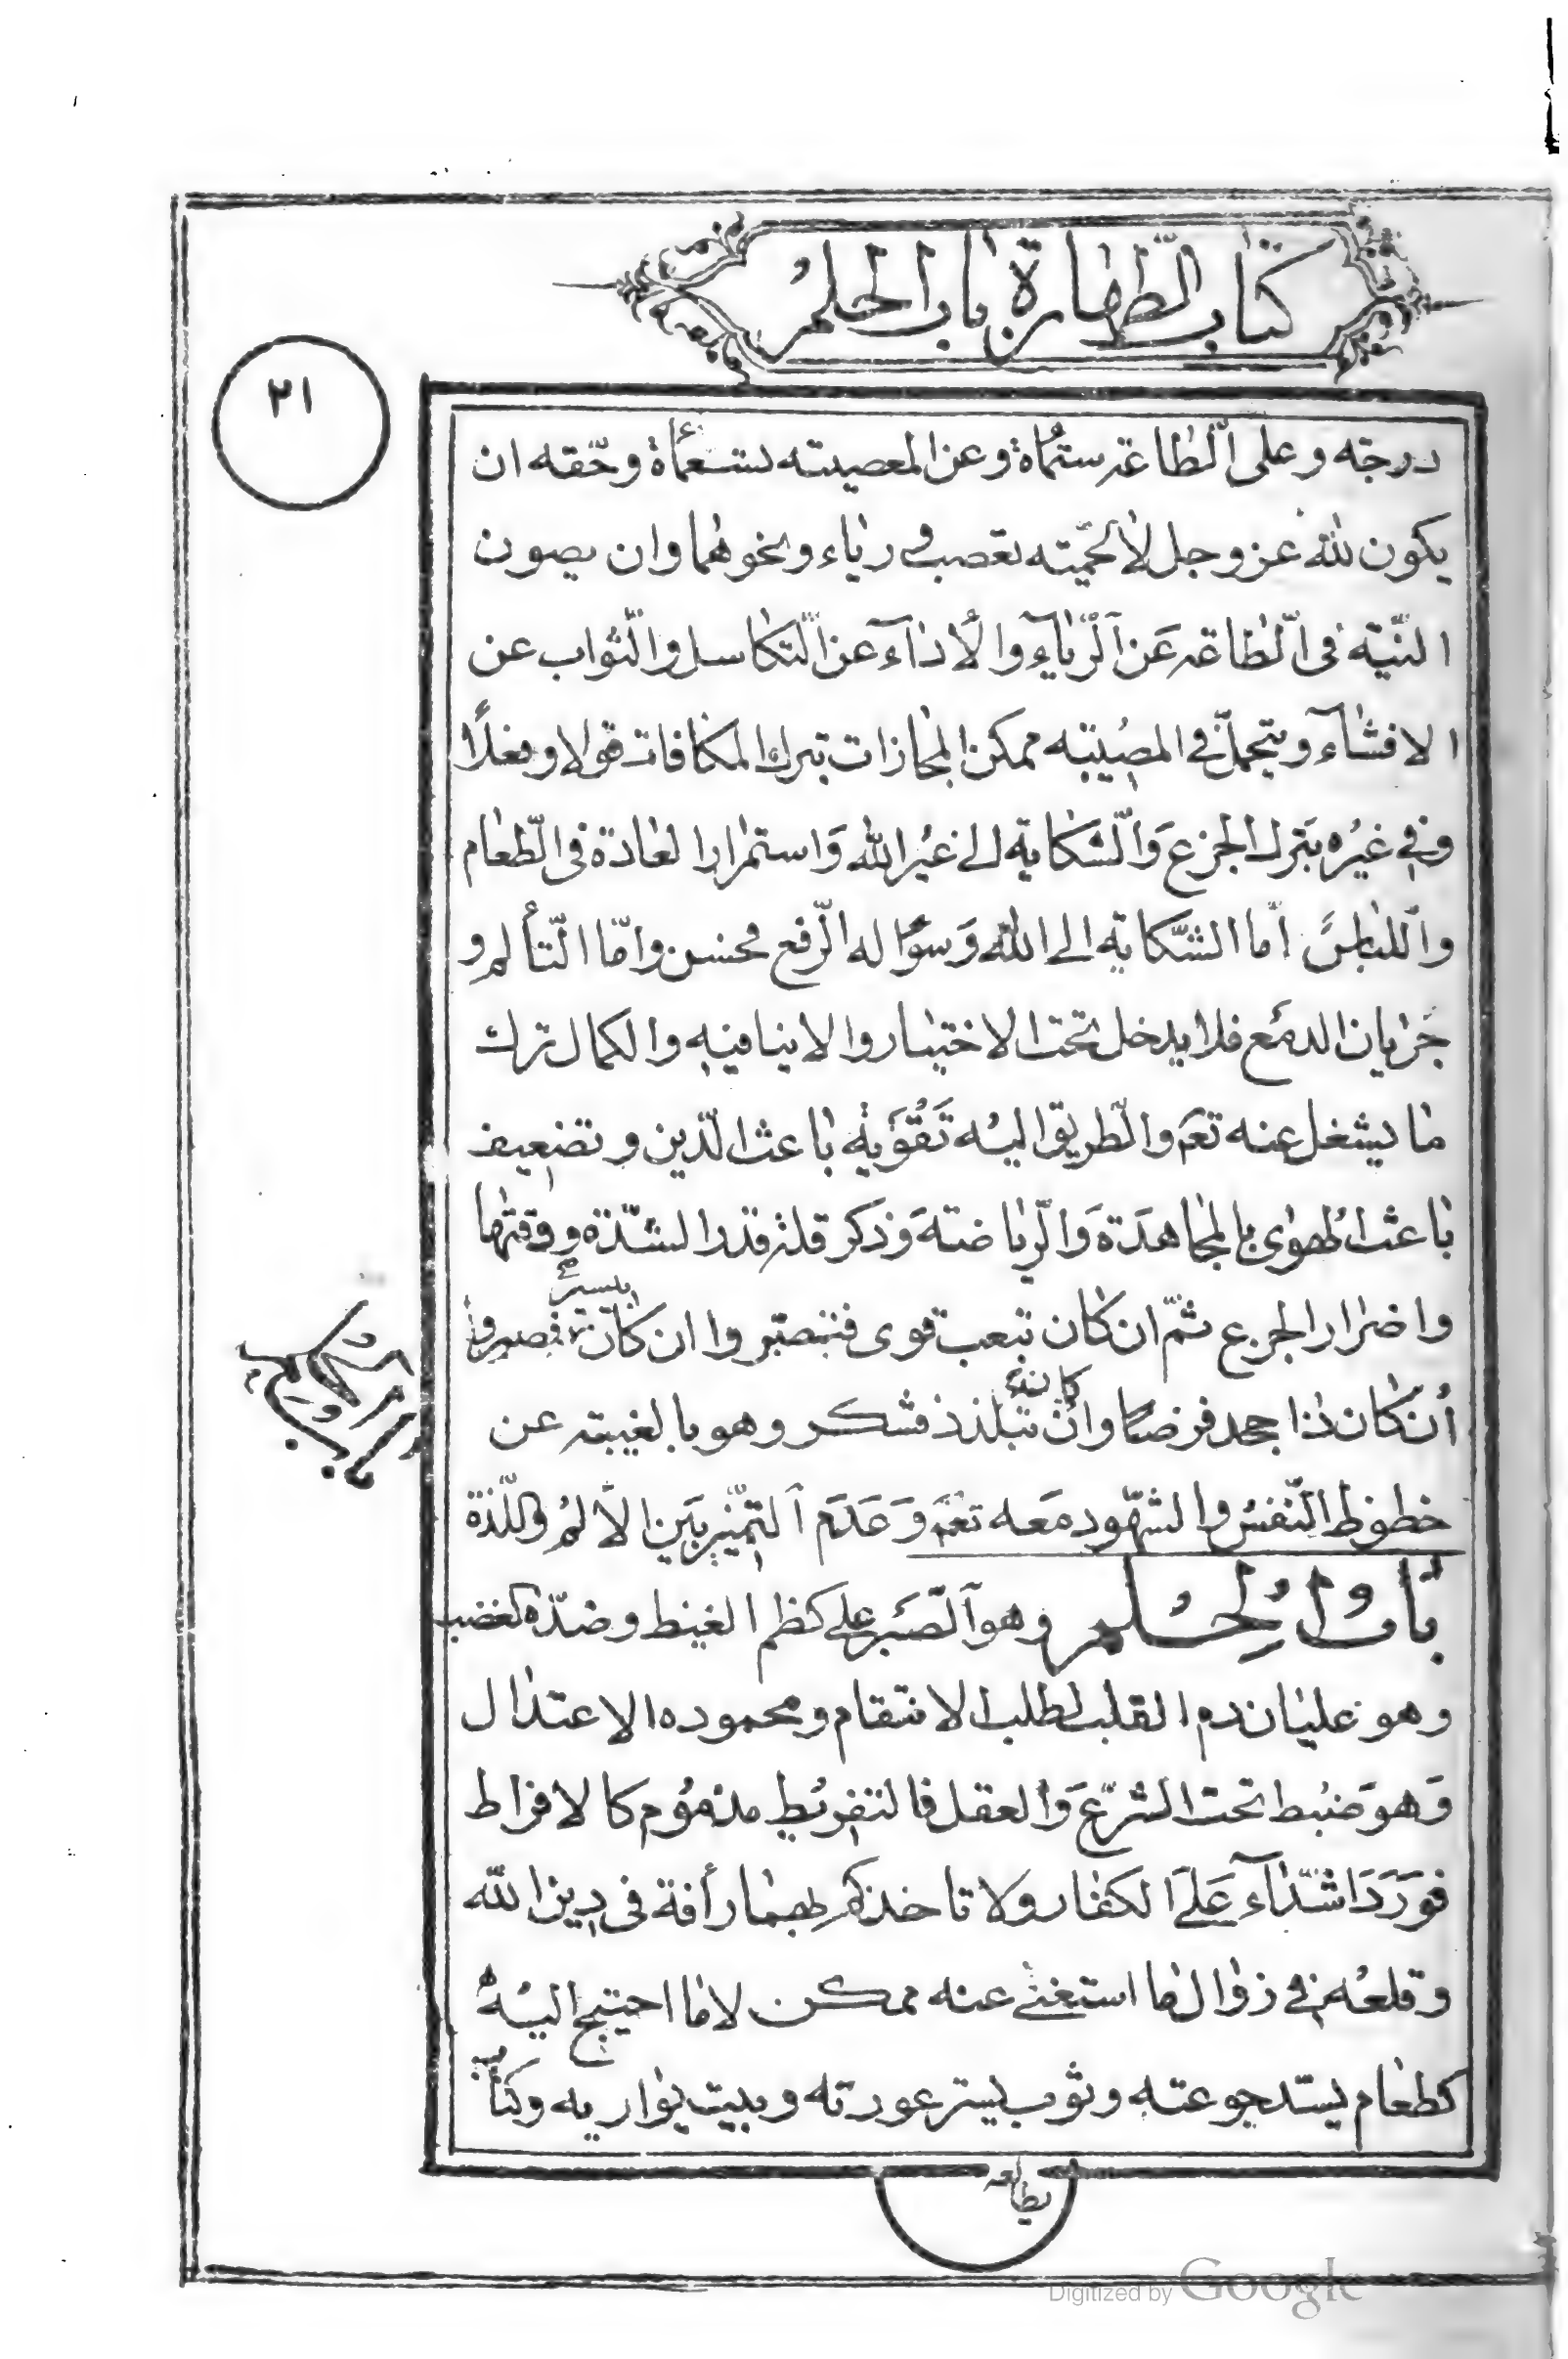 كتاب الطهارة باب الحلم
٢١
درجه و على الطاعة ستمأة و عن المعصيته تسعمأة و حقه ان
يكون لله عز و جل لا لحميته تعصب و رياء و نحوهما و ان يصون
النية فى الطاعة عَن الرّيآء و الأداآء عن التكاسل و الثواب عن
الافشآء و يتجمل فى المصيبته ممكن المجازات بترك المكافات قولا و فعلاً
و فى غيره بترك الجزع وَ الشكاية الى غير الله وَ استمرار العادة فى الطعام
و اللباس امّا الشكاية الى الله وَ سؤاله الرّفع محسن و امّا التألم و
جَريان الدمع فلا يدخل تحت الاختيار و الا ينافيه و الكمال ترك
ما يشغل عنه تعم و الطريق اليه تَقْوَية باعث الدّين و تضعيف
باعث الهوى بالمجاهدَة وَ الرّياضته وَ ذكر قلة قدر الشدّة و وقتها
و اضرار الجزع ثمّ ان كان تبعب قوى فتبصّر و ان كان بيسير فصبر و
أن كان ذا جحد فرضا و ان كانه تبلذذ فشكر و هو بالغيبته عن
خطوظ النّفس و الشهود مَعه تعَم وَ عَدَم التميّز بَين الالم و اللّذة
باب الحلم و هو الصّبَر على كظم الغيظ و ضدّه الغضب
و هو غليان دم القلب لطلب الانتقام و محموده الاعتدال
وَ هوَ ضبط تحت الشرّع وَ العقل فالتفريط مذموم كالافراط
فوَرَدَ اشدّآء عَلىَ الكفار و لا تاخذكم بهما رأفة فى دين الله
و قلعه فى زوال ما استغنى عنه ممكن لا ما احتيج اليه
كطعام يستد جوعته و ثوب يستر عورته و بيت يواريه و كتاب
يطالعه